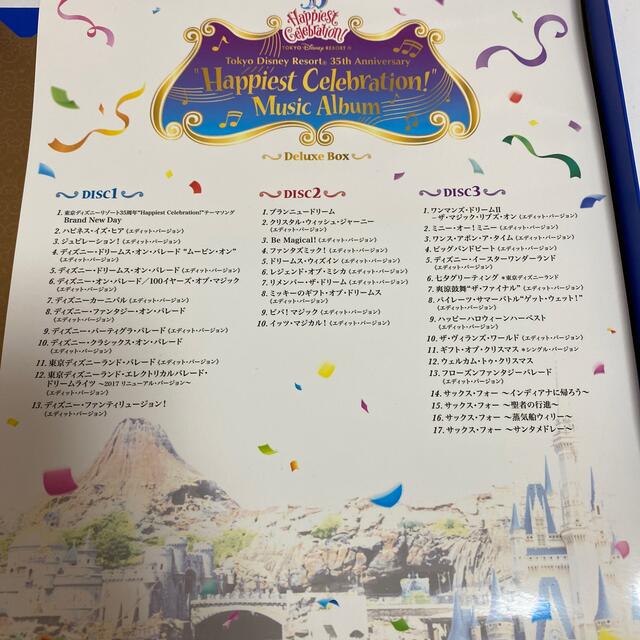 35
Happiest
Celebration!
TOKYO Disney RESORT®
Tokyo Disney Resort® 35th Anniversary
"Happiest Celebration!"
Music Album
Deluxe Box
DISC1
1. 東京ディズニーリゾート35周年"Happiest Celebration!"テーマソング
Brand New Day
2. ハピネス・イズ・ヒア (エディット・バージョン)
3. ジュビレーション! (エディット・バージョン)
4. ディズニー・ドリームス・オン・パレード "ムービン・オン"
(エディット・バージョン)
5. ディズニー・ドリームス・オン・パレード (エディット・バージョン)
6. ディズニー・オン・パレード/100イヤーズ・オブ・マジック
(エディット・バージョン)
7. ディズニーカーニバル (エディット・バージョン)
8. ディズニー・ファンタジー・オン・パレード
(エディット・バージョン)
9. ディズニー・パーティグラ・パレード (エディット・バージョン)
10. ディズニー・クラシックス・オン・パレード
(エディット・バージョン)
11. 東京ディズニーランド・パレード (エディット・バージョン)
12. 東京ディズニーランド・エレクトリカルパレード・
ドリームライツ ~2017 リニューアル・バージョン~
(エディット・バージョン)
13. ディズニー・ファンティリュージョン!
(エディット・バージョン)
DISC2
1. ブランニュードリーム
2. クリスタル・ウィッシュ・ジャーニー
(エディット・バージョン)
3. Be Magical! (エディット・バージョン)
4. ファンタズミック! (エディット・バージョン)
5. ドリームス・ウィズイン (エディット・バージョン)
6. レジェンド・オブ・ミシカ (エディット・バージョン)
7. リメンバー・ザ・ドリーム (エディット・バージョン)
8. ミッキーのギフト・オブ・ドリームス
(エディット・バージョン)
9. ビバ! マジック (エディット・バージョン)
10. イッツ・マジカル! (エディット・バージョン)
DISC3
1. ワンマンズ・ドリームII
-ザ・マジック・リブズ・オン (エディット・バージョン)
2. ミニー・オー! ミニー (エディット・バージョン)
3. ワンス・アポン・ア・タイム (エディット・バージョン)
4. ビッグバンドビート (エディット・バージョン)
5. ディズニー・イースターワンダーランド
(エディット・バージョン)
6. 七夕グリーティング *東京ディズニーランド
7. 爽涼鼓舞"ザ・ファイナル" (エディット・バージョン)
8. パイレーツ・サマーバトル"ゲット・ウェット!"
(エディット・バージョン)
9. ハッピーハロウィーンハーベスト
(エディット・バージョン)
10. ザ・ヴィランズ・ワールド (エディット・バージョン)
11. ギフト・オブ・クリスマス *シングル・バージョン
12. ウェルカム・トゥ・クリスマス
13. フローズンファンタジーパレード
(エディット・バージョン)
14. サックス・フォー ~インディアナに帰ろう~
15. サックス・フォー ~聖者の行進~
16. サックス・フォー ~蒸気船ウィリー~
17. サックス・フォー ~サンタメドレー~